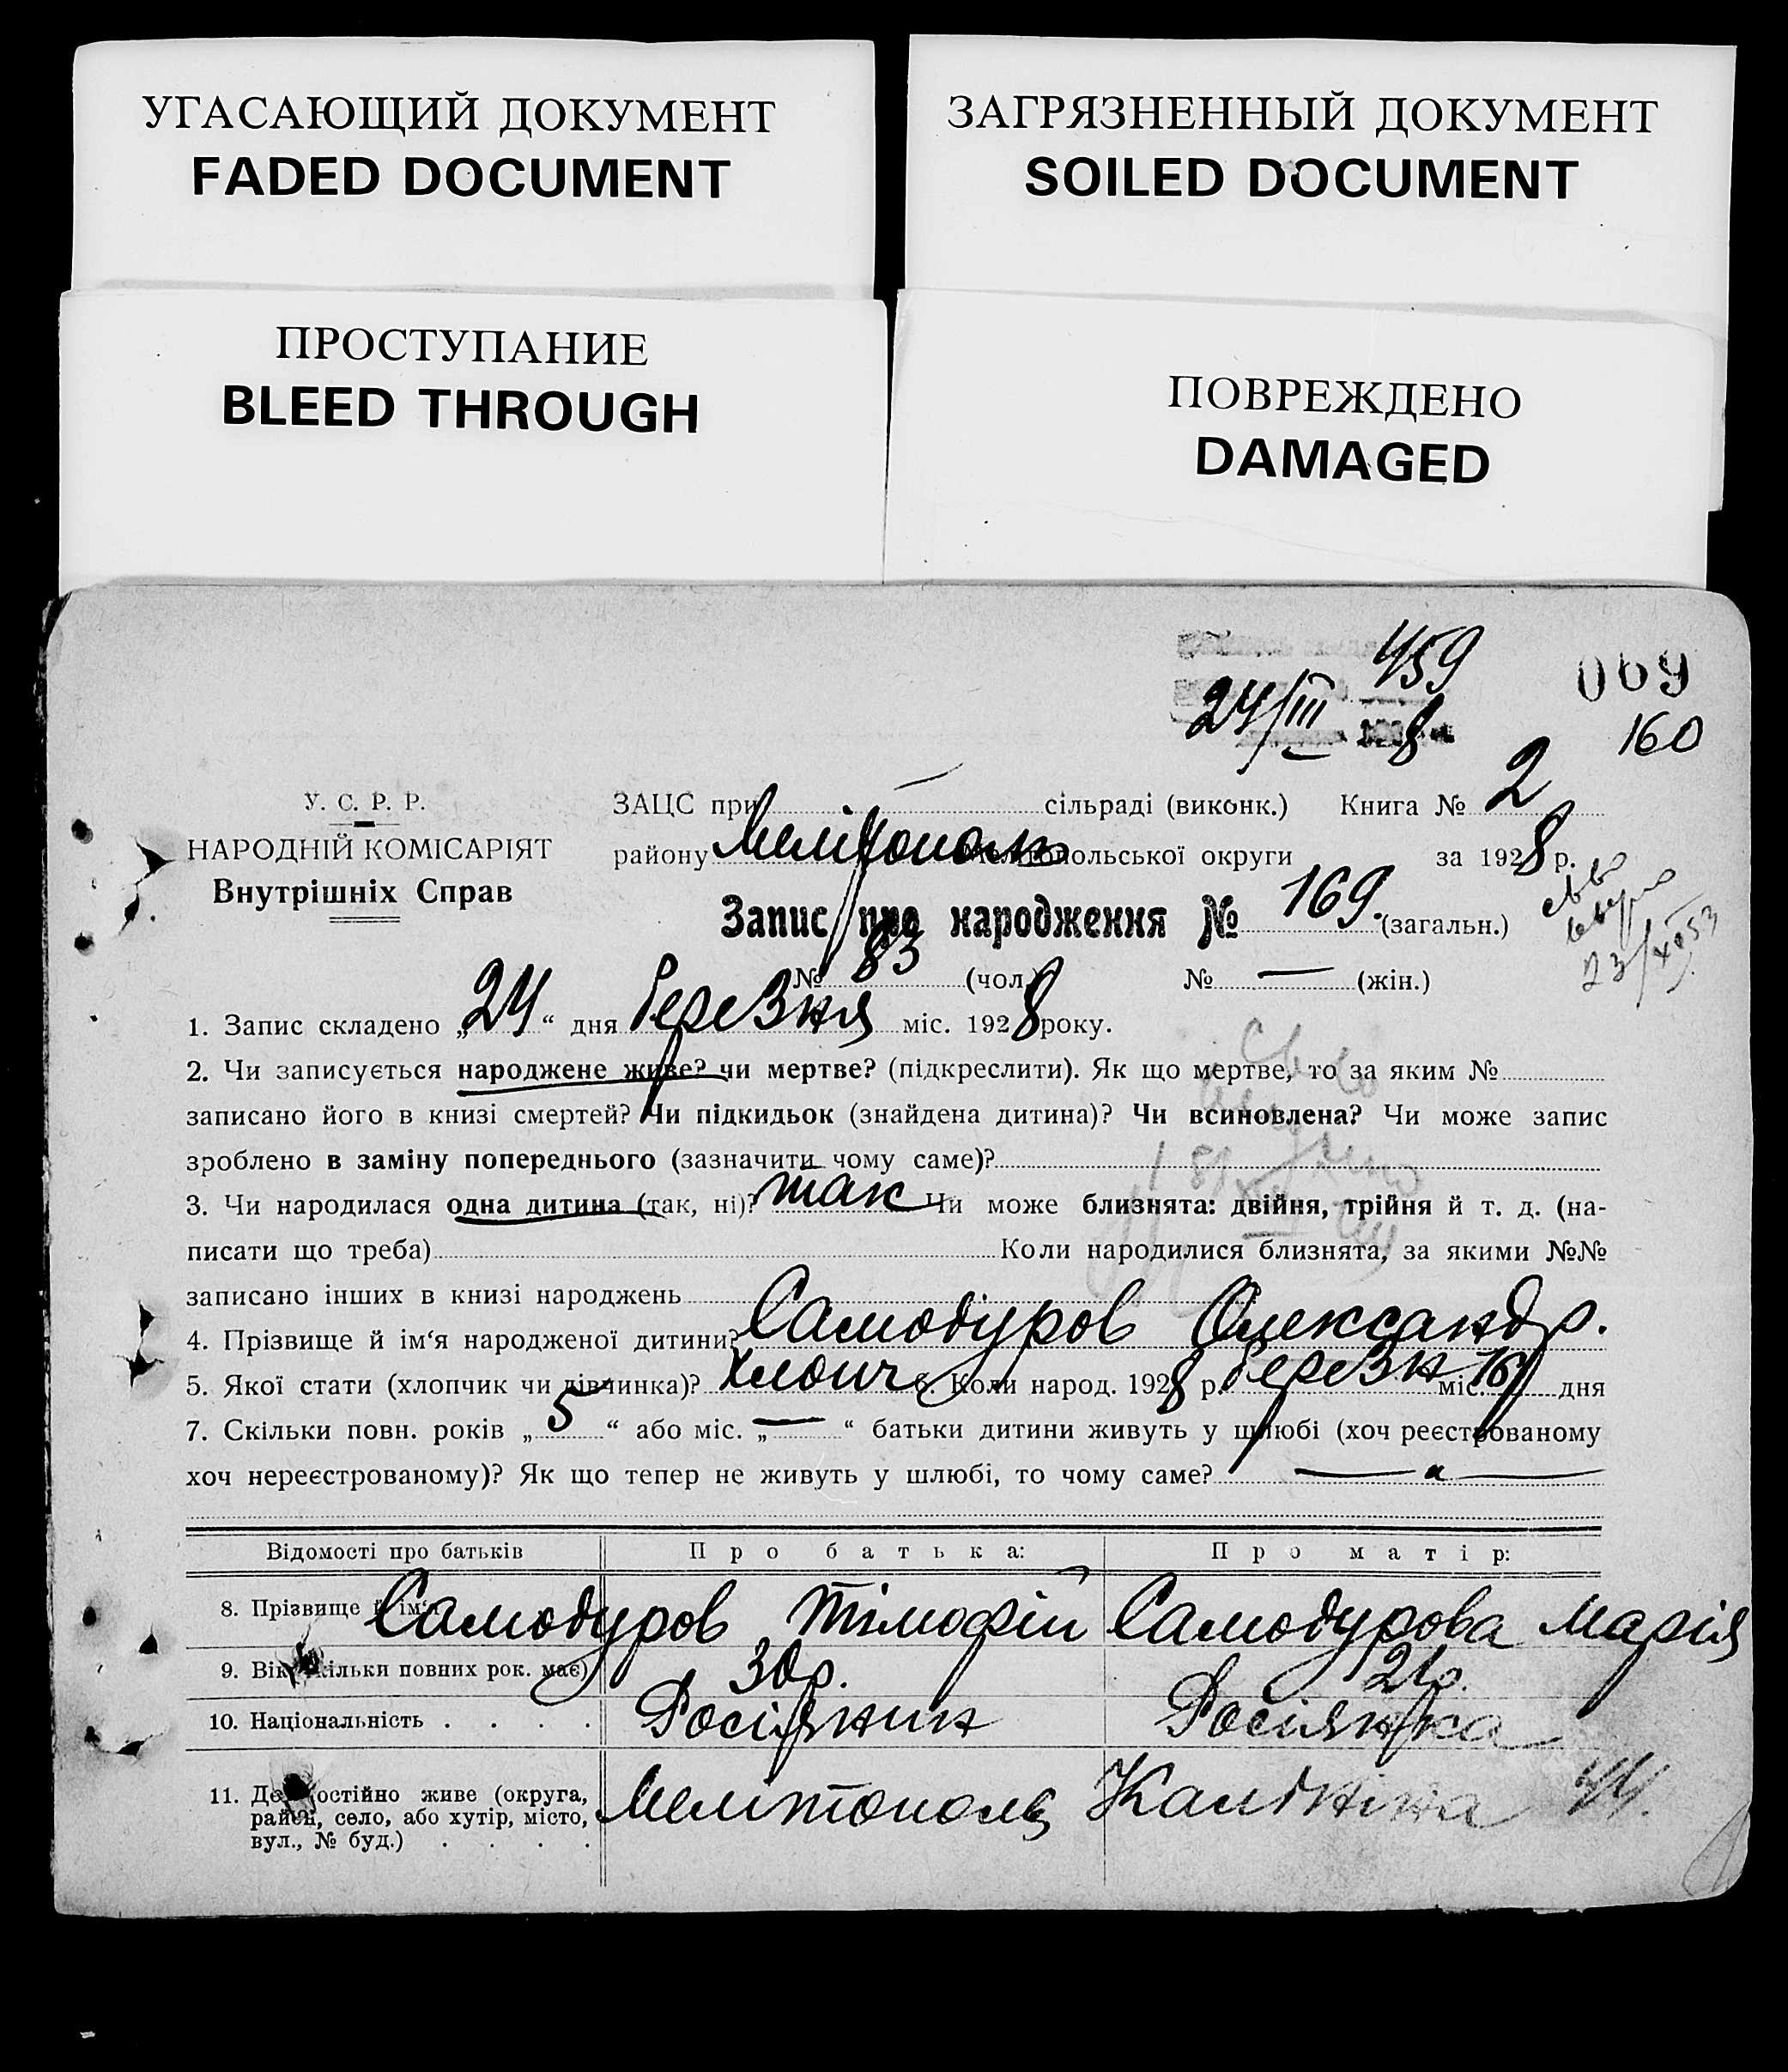 УГАСАЮЩИЙ ДОКУМЕНТ
FADED DOCUMENT
ЗАГРЯЗНЕННЫЙ ДОКУМЕНТ
SOILED DOCUMENT
ПРОСТУПАНИЕ
BLEED THROUGH
ПОВРЕЖДЕНО
DAMAGED
459
24/III 8
069
160
У. С. Р. Р.
НАРОДНІЙ КОМІСАРІЯТ
Внутрішніх Справ
ЗАЦС при сільраді (виконк.) Книга № 2
району Мелітополь Мелітопольської округи за 1928 р.
Запис про народження № 169. (загальн.)
№ 83 (чол.) № — (жін.)
23/XI 53
1. Запис складено „24“ дня березня міс. 1928 року.
2. Чи записується народжене живе? чи мертве? (підкреслити). Як що мертве, то за яким №
записано його в книзі смертей? Чи підкидьок (знайдена дитина)? Чи всиновлена? Чи може запис
зроблено в заміну попереднього (зазначити чому саме)?
3. Чи народилася одна дитина (так, ні)? так Чи може близнята: двійня, трійня й т. д. (на-
писати що треба) Коли народилися близнята, за якими №№
записано інших в книзі народжень
4. Прізвище й ім‘я народженої дитини? Самодуров Олександр.
5. Якої стати (хлопчик чи дівчинка)? хлопч. 6. Коли народ. 1928 р. березн міс. 16 дня
7. Скільки повн. років „5“ або міс. „—“ батьки дитини живуть у шлюбі (хоч реєстрованому
хоч нереєстрованому)? Як що тепер не живуть у шлюбі, то чому саме? — „ —
Відомості про батьків Про батька: Про матір:
8. Прізвище й ім‘я Самодуров Тімофій Самодурова Марія
9. Вік (скільки повних рок. має) 30р. 21р.
10. Національність . . . . Росіянин Росіянка
11. Де постійно живе (округа,
район, село, або хутір, місто,
вул., № буд.) . . . .
Мелітополь Калініна 44.